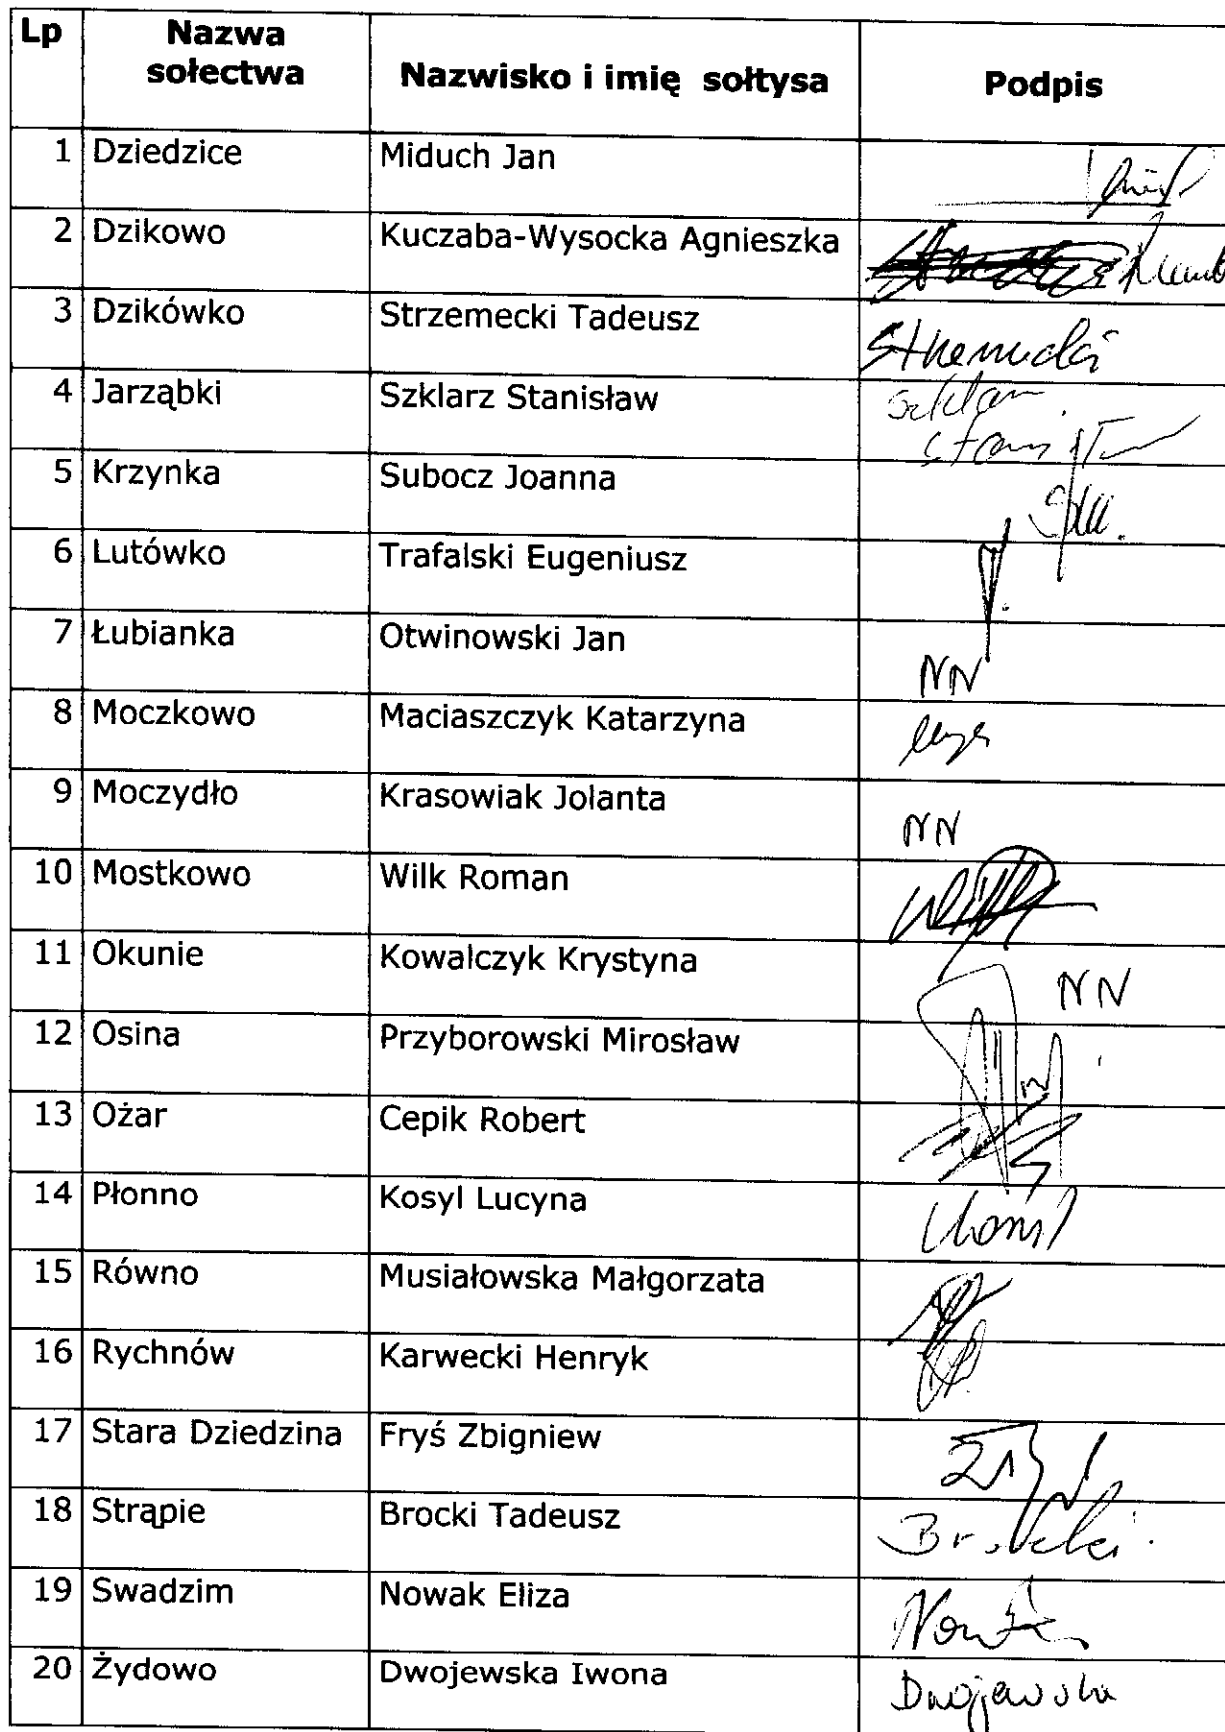 Lp Nazwa sołectwa Nazwisko i imię sołtysa Podpis
1 Dziedzice Miduch Jan
2 Dzikowo Kuczaba-Wysocka Agnieszka
3 Dzikówko Strzemecki Tadeusz
4 Jarząbki Szklarz Stanisław
5 Krzynka Subocz Joanna
6 Lutówko Trafalski Eugeniusz
7 Łubianka Otwinowski Jan NN
8 Moczkowo Maciaszczyk Katarzyna
9 Moczydło Krasowiak Jolanta NN
10 Mostkowo Wilk Roman
11 Okunie Kowalczyk Krystyna NN
12 Osina Przyborowski Mirosław
13 Ożar Cepik Robert
14 Płonno Kosyl Lucyna
15 Równo Musiałowska Małgorzata
16 Rychnów Karwecki Henryk
17 Stara Dziedzina Fryś Zbigniew
18 Strąpie Brocki Tadeusz
19 Swadzim Nowak Eliza
20 Żydowo Dwojewska Iwona Dwojewska